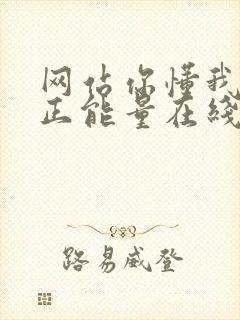 网估你懂我
正能量在线
路易威登